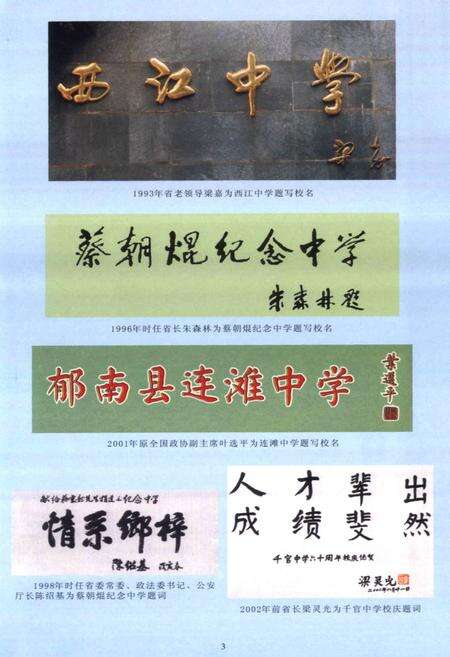 西江中学
梁嘉
1993年省老领导梁嘉为西江中学题写校名
蔡朝焜纪念中学
朱森林题
1996年时任省长朱森林为蔡朝焜纪念中学题写校名
郁南县连滩中学
叶选平
2001年原全国政协副主席叶选平为连滩中学题写校名
情系鄉梓
陈绍基
1998年时任省委常委、政法委书记、公安
厅长陈绍基为蔡朝焜纪念中学题词
人才辈出
成绩斐然
千官中学六十周年校庆志贺
梁灵光
2002年前省长梁灵光为千官中学校庆题词
3